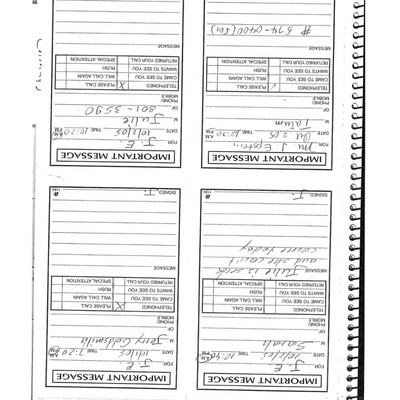 IMPORTANT MESSAGE
FOR J.E.
DATE 10/2/05 TIME 10:40 A.M. P.M.
M Sarah
OF
PHONE/
MOBILE
TELEPHONED PLEASE CALL
CAME TO SEE YOU WILL CALL AGAIN
WANTS TO SEE YOU RUSH
RETURNED YOUR CALL SPECIAL ATTENTION
MESSAGE Julie is sick
and she can't
come today
SIGNED J. 1184
IMPORTANT MESSAGE
FOR J.E.
DATE 10/1/05 TIME A.M. P.M.
M Jerry Goldsmith
OF
PHONE/
MOBILE
TELEPHONED X PLEASE CALL
CAME TO SEE YOU WILL CALL AGAIN
WANTS TO SEE YOU RUSH
RETURNED YOUR CALL SPECIAL ATTENTION
MESSAGE
SIGNED J. 1184
IMPORTANT MESSAGE
FOR Mr J Epstein
DATE TIME 12:30 A.M. P.M.
M Tatum
OF
PHONE/
MOBILE
TELEPHONED PLEASE CALL
CAME TO SEE YOU WILL CALL AGAIN
WANTS TO SEE YOU RUSH
RETURNED YOUR CALL SPECIAL ATTENTION
MESSAGE
IMPORTANT MESSAGE
FOR J.E.
DATE 10/2/05 TIME 10:20 A.M. P.M.
M Julie
OF 801-3590
PHONE/
MOBILE
TELEPHONED PLEASE CALL X
CAME TO SEE YOU WILL CALL AGAIN
WANTS TO SEE YOU RUSH
RETURNED YOUR CALL SPECIAL ATTENTION
MESSAGE